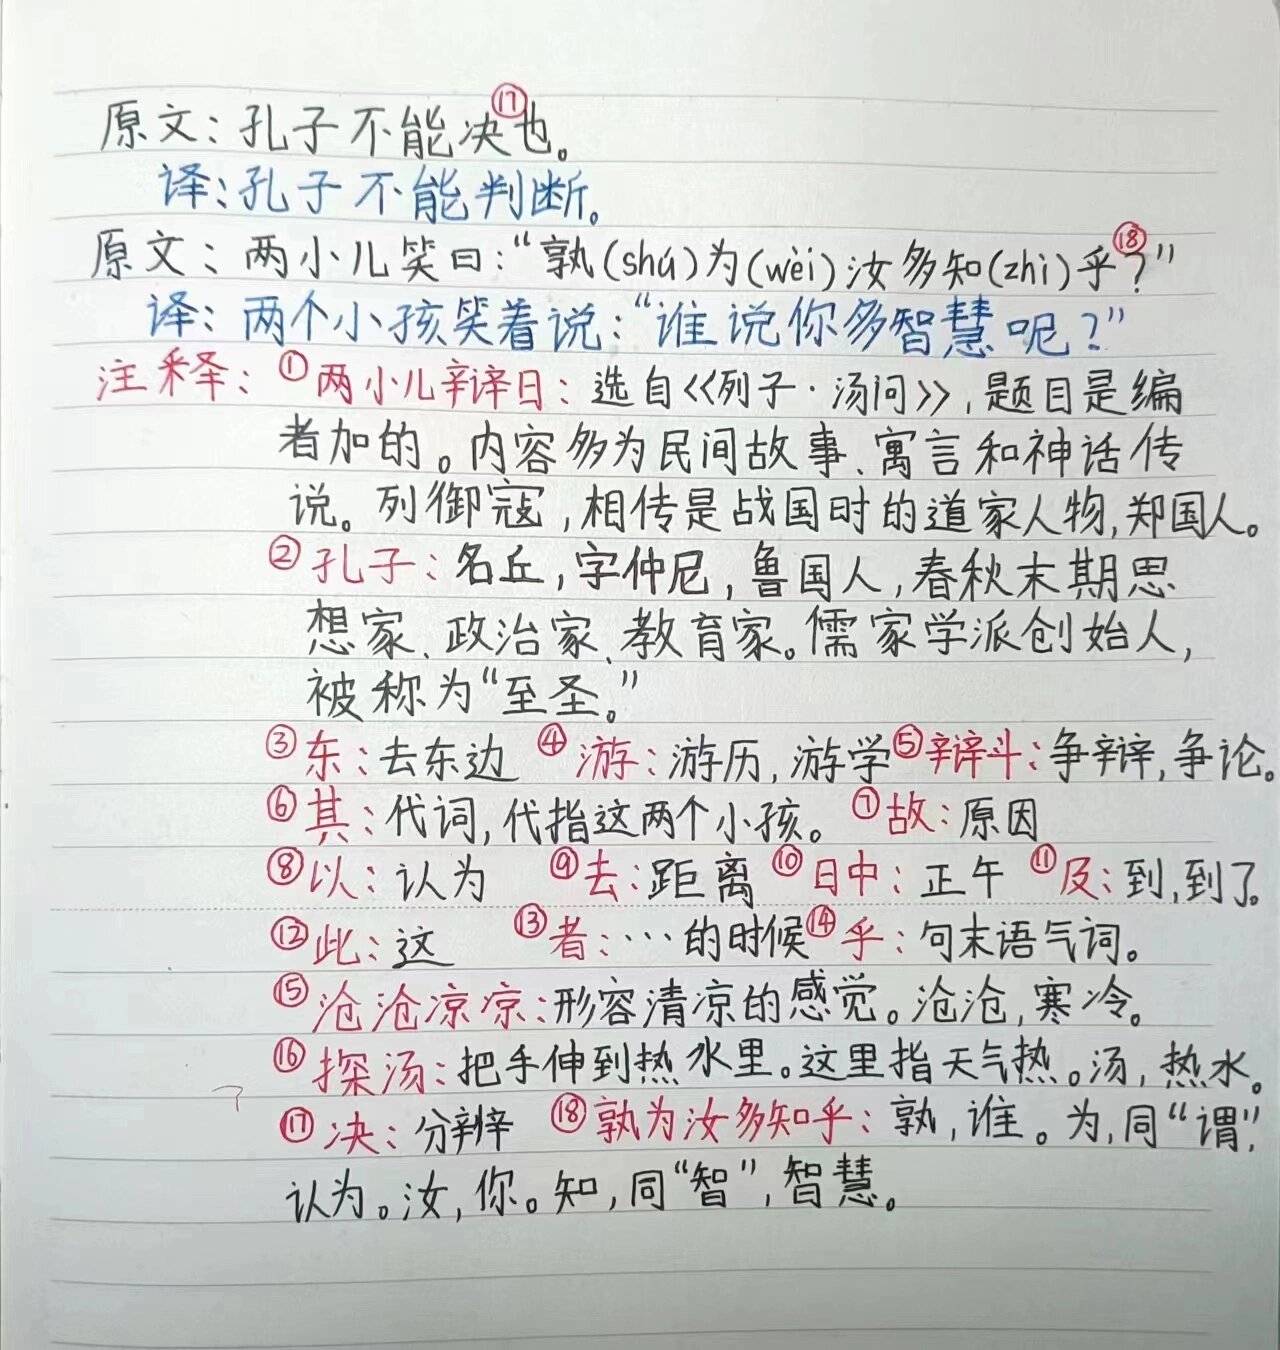 原文：孔子不能决⑰也。
译：孔子不能判断。
原文：两小儿笑曰：“孰(shú)为(wèi)汝多知(zhì)乎⑱？”
译：两个小孩笑着说：“谁说你多智慧呢？”
注释：①两小儿辩日：选自《列子·汤问》，题目是编
者加的。内容多为民间故事、寓言和神话传
说。列御寇，相传是战国时的道家人物，郑国人。
②孔子：名丘，字仲尼，鲁国人，春秋末期思
想家、政治家、教育家。儒家学派创始人，
被称为“至圣。”
③东：去东边 ④游：游历，游学⑤辩斗：争辩，争论。
⑥其：代词，代指这两个小孩。 ⑦故：原因
⑧以：认为 ⑨去：距离 ⑩日中：正午 ⑪及：到，到了。
⑫此：这 ⑬者：…的时候⑭乎：句末语气词。
⑮沧沧凉凉：形容清凉的感觉。沧沧，寒冷。
⑯探汤：把手伸到热水里。这里指天气热。汤，热水。
⑰决：分辨 ⑱孰为汝多知乎：孰，谁。为，同“谓”，
认为。汝，你。知，同“智”，智慧。